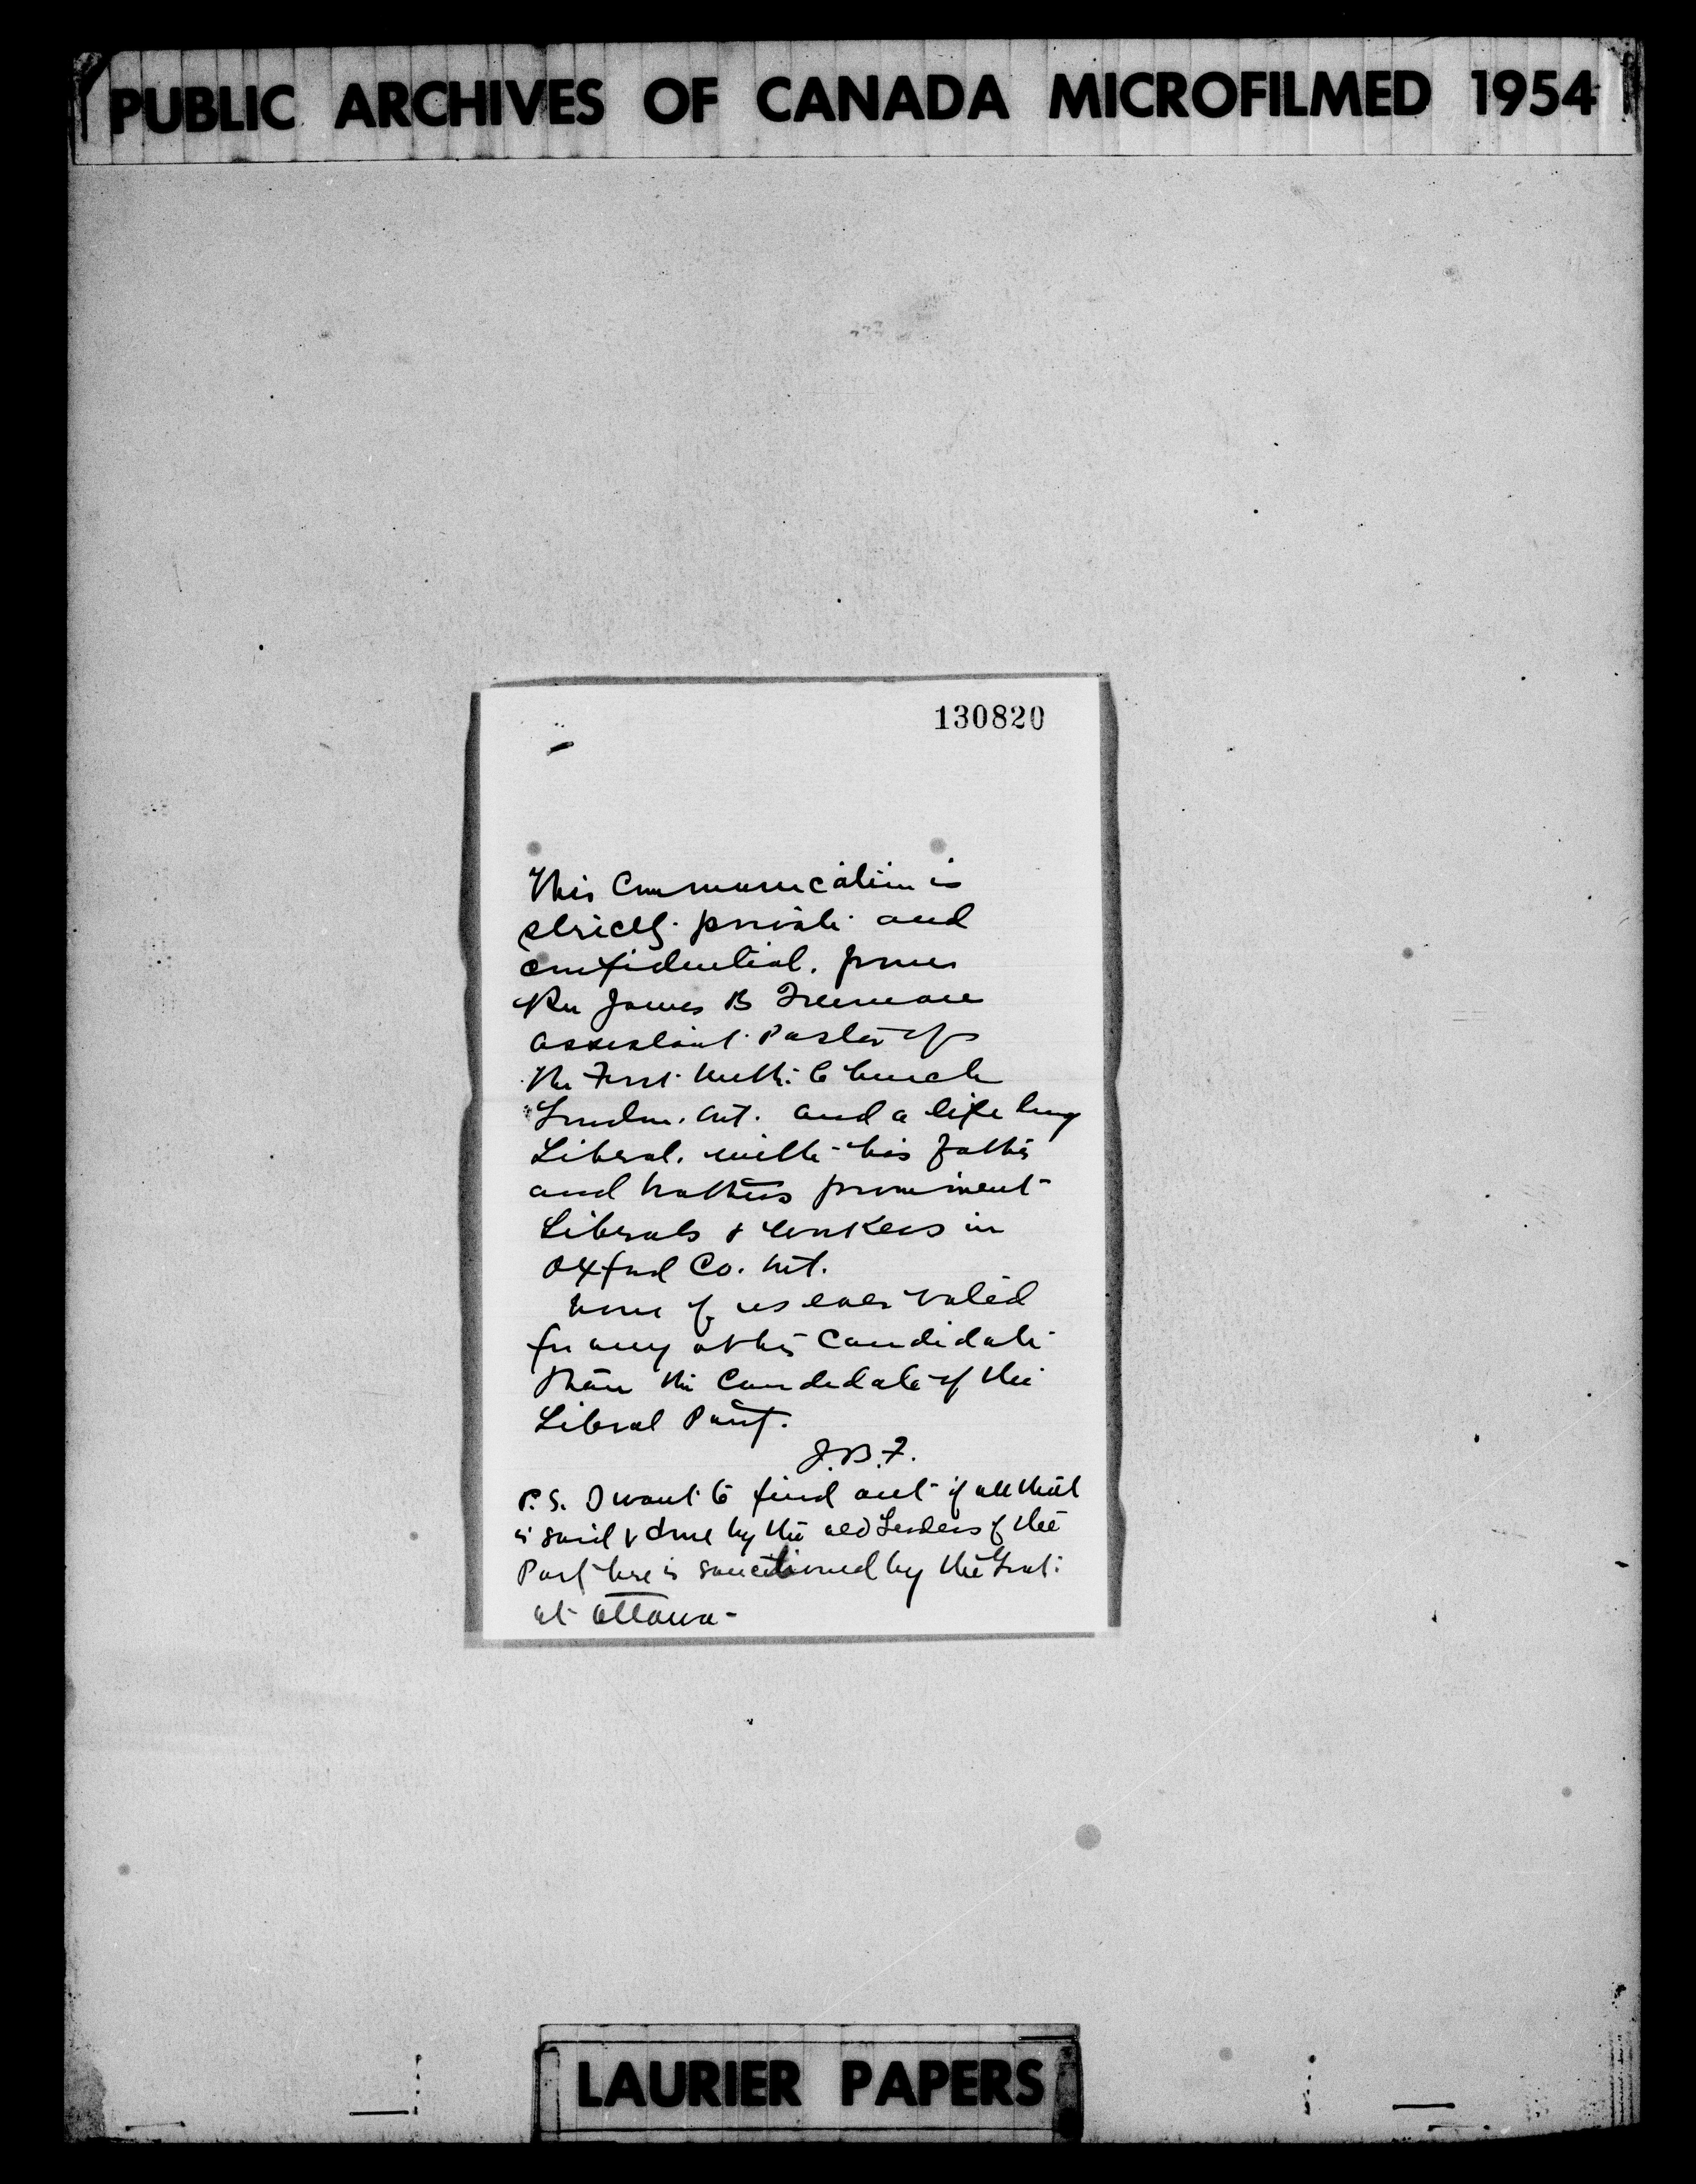 PUBLIC ARCHIVES OF CANADA MICROFILMED 1954
130820
This Communication is
strictly private and
confidential. from
Rev James B Freeman
assistant Pastor of
the First Meth. Church
London. Ont. and a life long
Liberal. with his father
and brothers prominent
Liberals & workers in
Oxford Co. Ont.
None of us ever voted
for any other Candidate
than the Candidate of the
Liberal Party.
J.B.F.
P.S. I want to find out if all that
is said & done by the old Leaders of the
Party here is sanctioned by the Govt.
at Ottawa -
LAURIER PAPERS